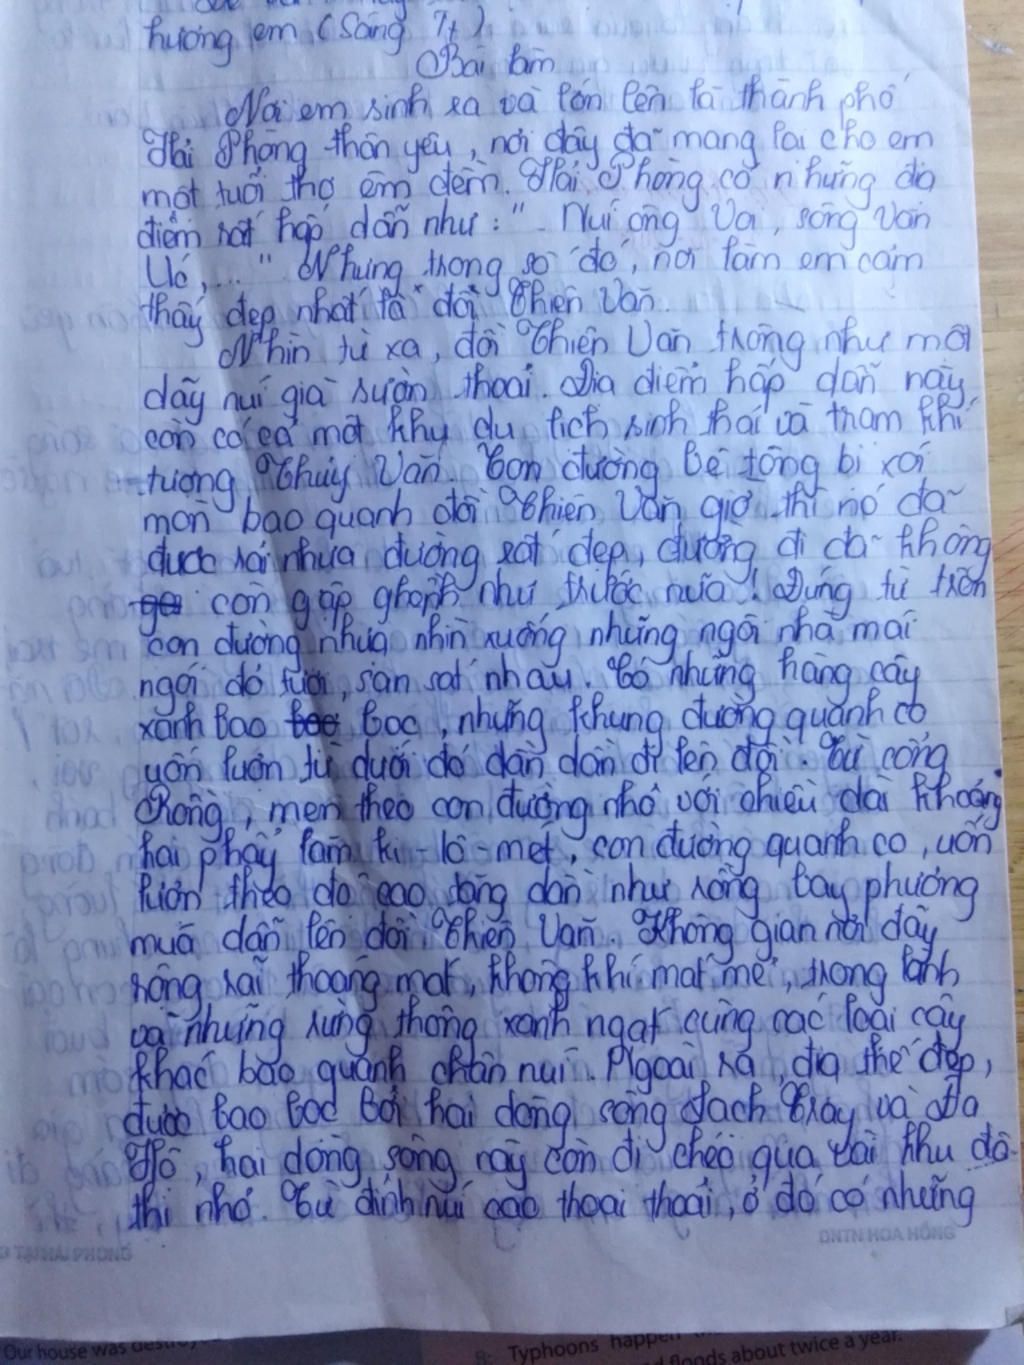 hương em (Sáng 7t)
Bài làm
Nơi em sinh ra và lớn lên là thành phố
Hải Phòng thân yêu, nơi đây đã mang lại cho em
một tuổi thơ êm đềm. Hải Phòng có những địa
điểm rất hấp dẫn như: " Núi ông Voi, sông Văn
Úc,... " Nhưng trong số đó, nơi làm em cảm
thấy đẹp nhất là đồi Thiên Văn.
Nhìn từ xa, đồi Thiên Văn trông như một
dãy núi già sườn thoai. Địa điểm hấp dẫn này
còn có cả một khu du lịch sinh thái và trạm khí
tượng Thủy Văn. Con đường bê tông bị xói
mòn bao quanh đồi Thiên Văn giờ thì nó đã
được rải nhựa đường rất đẹp, đường đi đã không
còn gập ghềnh như trước nữa! Đứng từ trên
con đường nhựa nhìn xuống những ngôi nhà mái
ngói đỏ tươi, san sát nhau. Có những hàng cây
xanh bao bọc, những khung đường quanh co
uốn lượn từ dưới đó dần dần đi lên đồi. Từ cổng
Rồng, men theo con đường nhỏ với chiều dài khoảng
hai phẩy lăm ki-lô-mét, con đường quanh co, uốn
lượn theo độ cao tăng dần như rồng bay phượng
múa dẫn lên đồi Thiên Văn. Không gian nơi đây
rộng rãi thoáng mát, không khí mát mẻ, trong lành
và những rừng thông xanh ngát cùng các loài cây
khác bao quanh chân núi. Ngoài ra, địa thế đẹp,
được bao bọc bởi hai dòng sông Lạch Tray và Đa
Độ, hai dòng sông này còn đi chéo qua vài khu đô
thị nhỏ. Từ đỉnh núi cao thoai thoải, ở đó có những
TẠI HẢI PHÒNG
DNTN HOA HỒNG
Our house was
Typhoons happen
floods about twice a year.